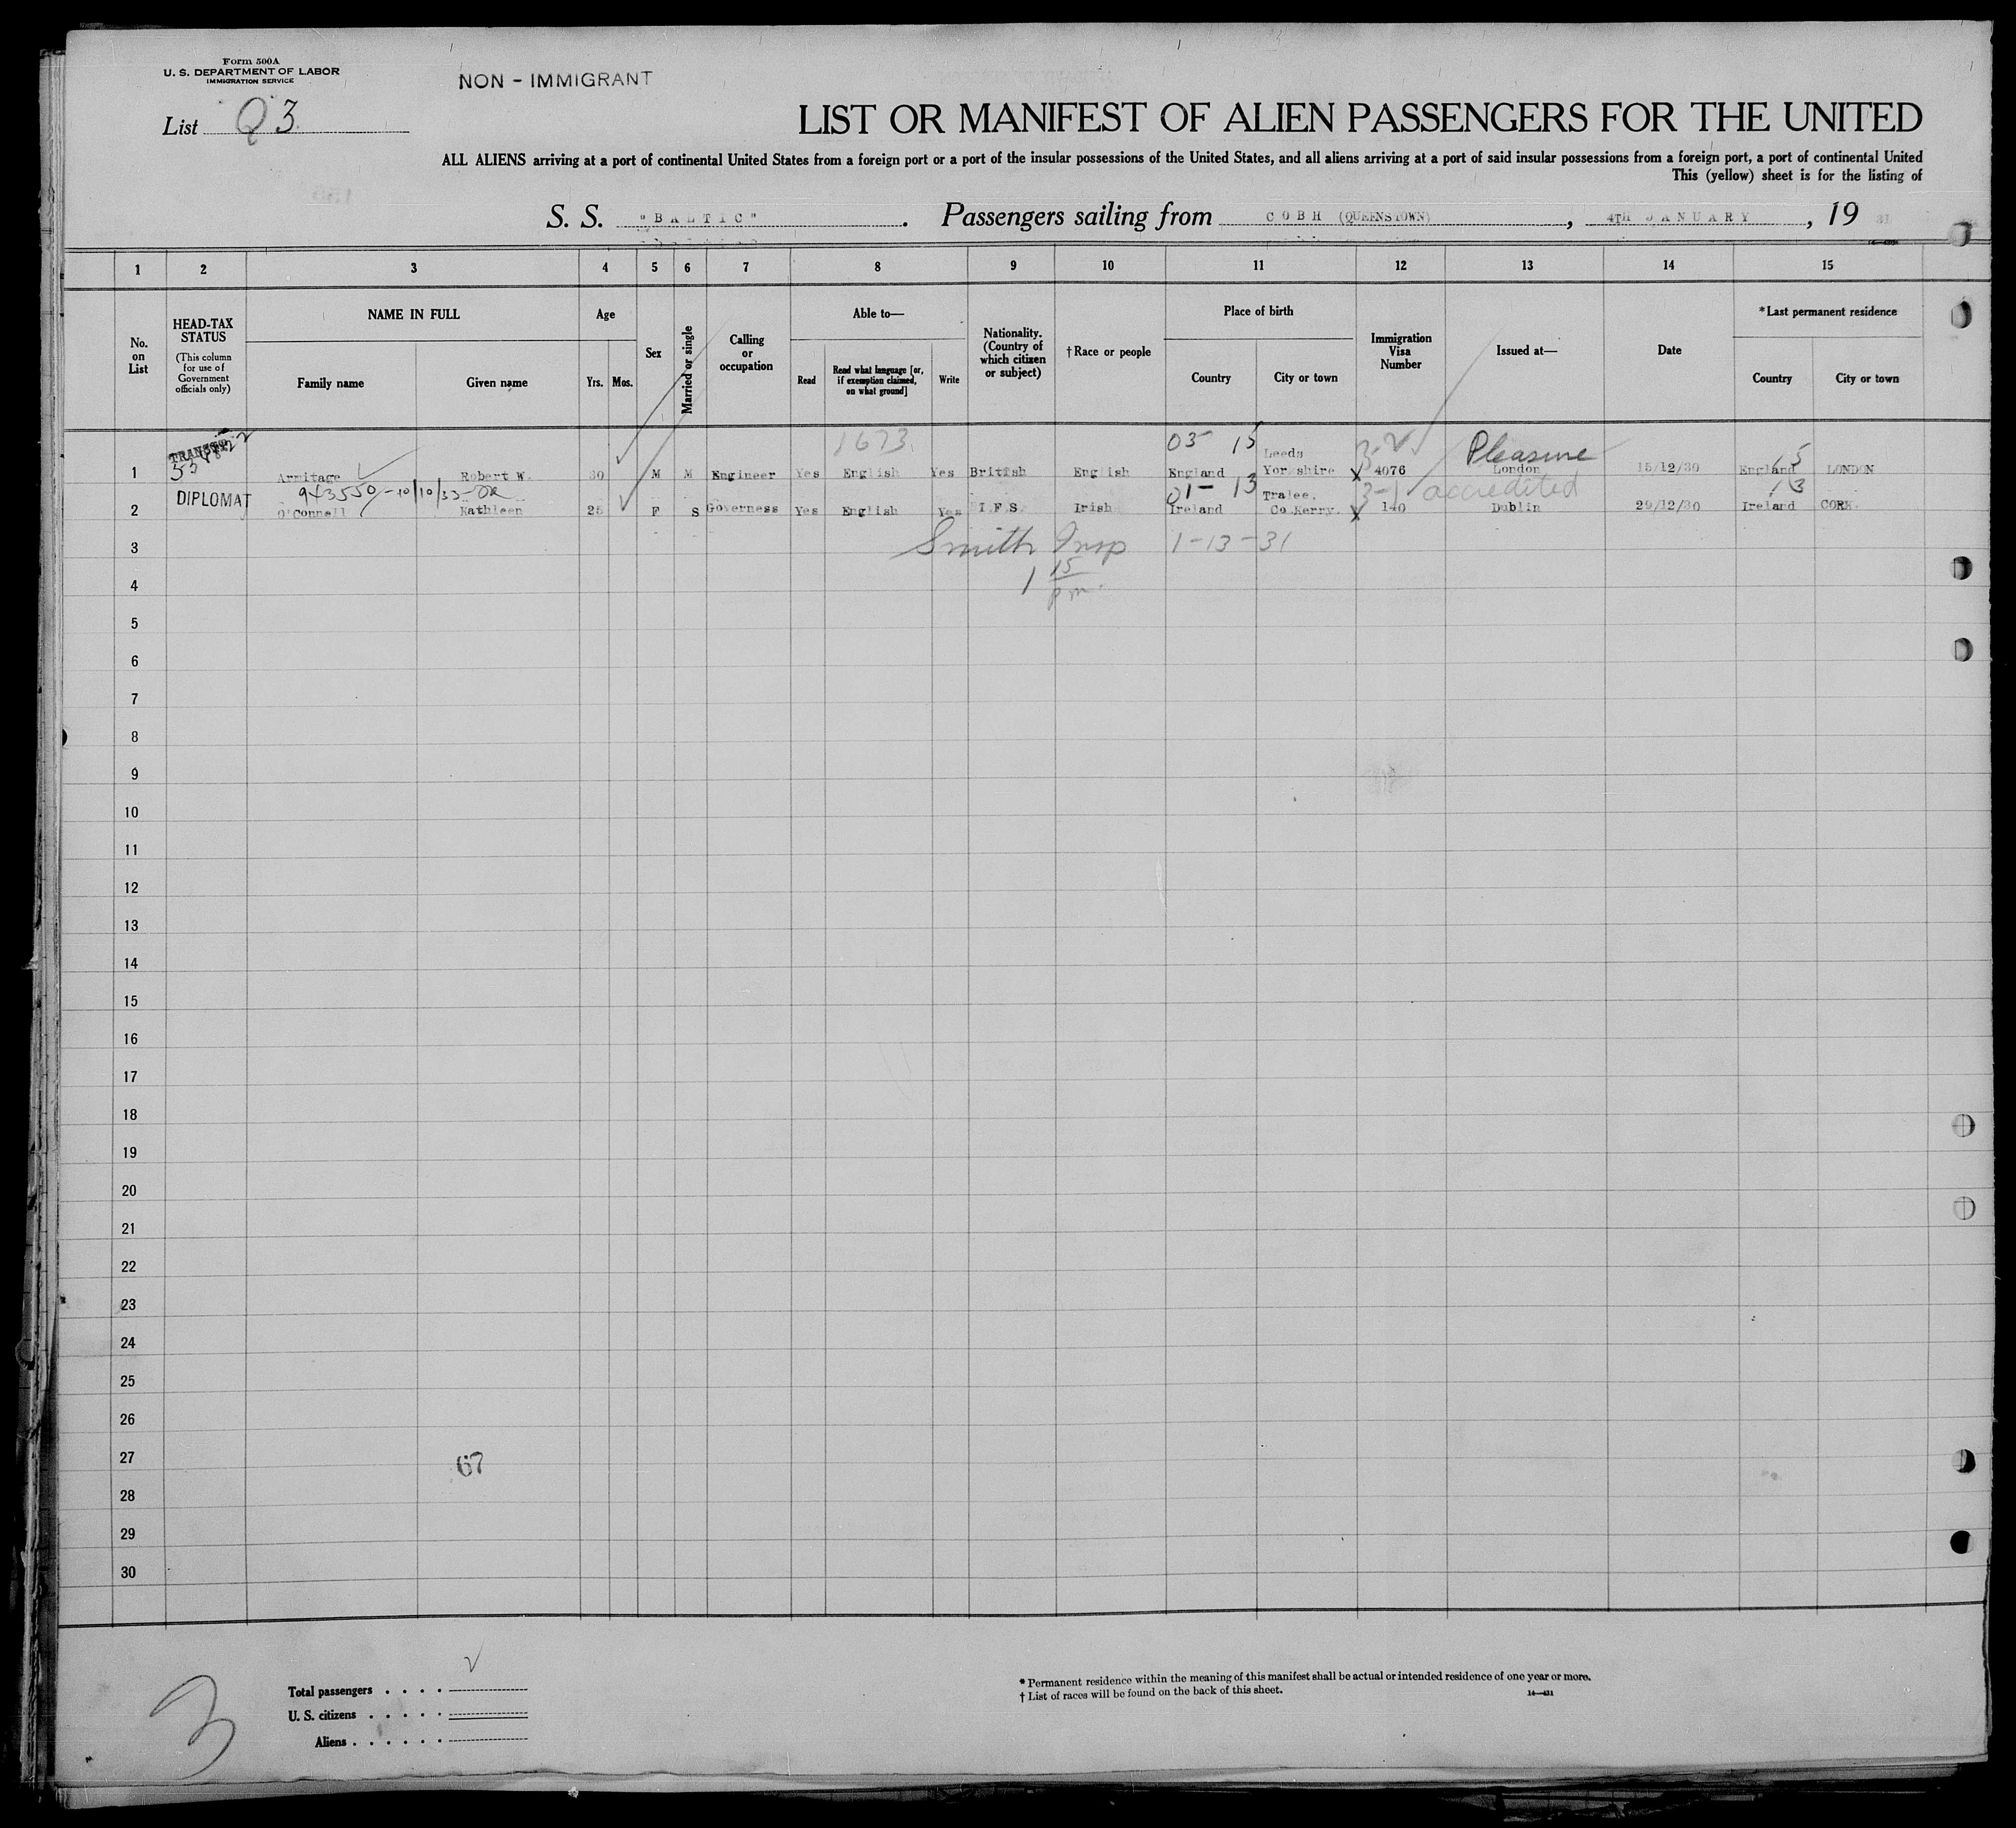 Form 500A
U. S. DEPARTMENT OF LABOR
IMMIGRATION SERVICE
NON - IMMIGRANT
List Q 3
LIST OR MANIFEST OF ALIEN PASSENGERS FOR THE UNITED
ALL ALIENS arriving at a port of continental United States from a foreign port or a port of the insular possessions of the United States, and all aliens arriving at a port of said insular possessions from a foreign port, a port of continental United
This (yellow) sheet is for the listing of
S. S. "BALTIC". Passengers sailing from COBH (QUEENSTOWN), 4TH JANUARY, 19 31
1 2 3 4 5 6 7 8 9 10 11 12 13 14 15
No. on List
HEAD-TAX STATUS
(This column for use of Government officials only)
NAME IN FULL
Family name
Given name
Age
Yrs. Mos.
Sex
Married or single
Calling or occupation
Able to—
Read
Read what language [or, if exemption claimed, on what ground]
Write
Nationality. (Country of which citizen or subject)
† Race or people
Place of birth
Country
City or town
Immigration Visa Number
Issued at—
Date
*Last permanent residence
Country
City or town
1673 05 15 Leeds 3-2 Pleasure 15
1 TRANSIT Armitage Robert W. 30 M M Engineer Yes English Yes British English England Yorkshire 4076 London 15/12/30 England LONDON
DIPLOMAT 943550-10/10/33-OR 01- 13 Tralee, 3-1 accredited 13
2 O'Connell Kathleen 25 F S Governess Yes English Yes I.F.S. Irish Ireland Co.Kerry. 140 Dublin 29/12/30 Ireland CORK.
3 Smith Insp 1-13-31
4 1 15 pm.
5
6
7
8
9
10
11
12
13
14
15
16
17
18
19
20
21
22
23
24
25
26
27 67
28
29
30
3
Total passengers . . . .
U. S. citizens . . . . .
Aliens . . . . . .
* Permanent residence within the meaning of this manifest shall be actual or intended residence of one year or more.
† List of races will be found on the back of this sheet.
14—431